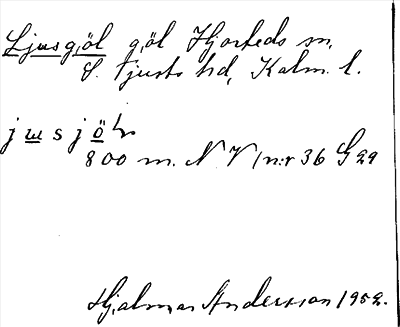 Ljusgöl göl Hjorteds sn,
S. Tjusts hd, Kalm. l.
jusjö
800 m. N V
Hjalmar Andersson 1952.